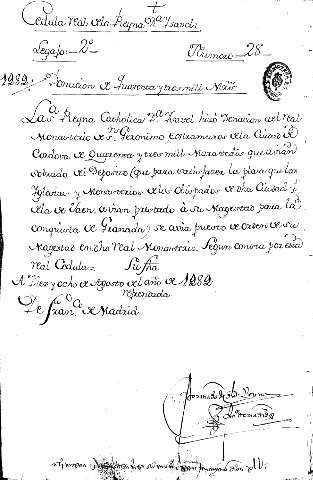 Cedula Real de la Reyna Dª Isavel
Legajo 2º Numero 28
1282. Donacion de Quarenta y tres mill Mrs
La Sª Reyna Catholica Dª Isavel hizo Donacion al Real
Monasterio de Sn Geronimo extramuros de la Ciudad de
Cordova de Quarenta y tres mill Maravedis que avian
sobrado del Deposito (que para satisfazer la plata que las
Iglesias y Monasterios de los Obispados de dha Ciudad y
de la de Jaen avian prestado a su Magestad para la
conquista de Granada) se avia puesto de orden de su
Magestad en dho Real Monasterio. Segun consta por esta
real Cedula. Su fha
A Diez y ocho de Agosto del año de 1282
refrendada
De Franco de Madrid